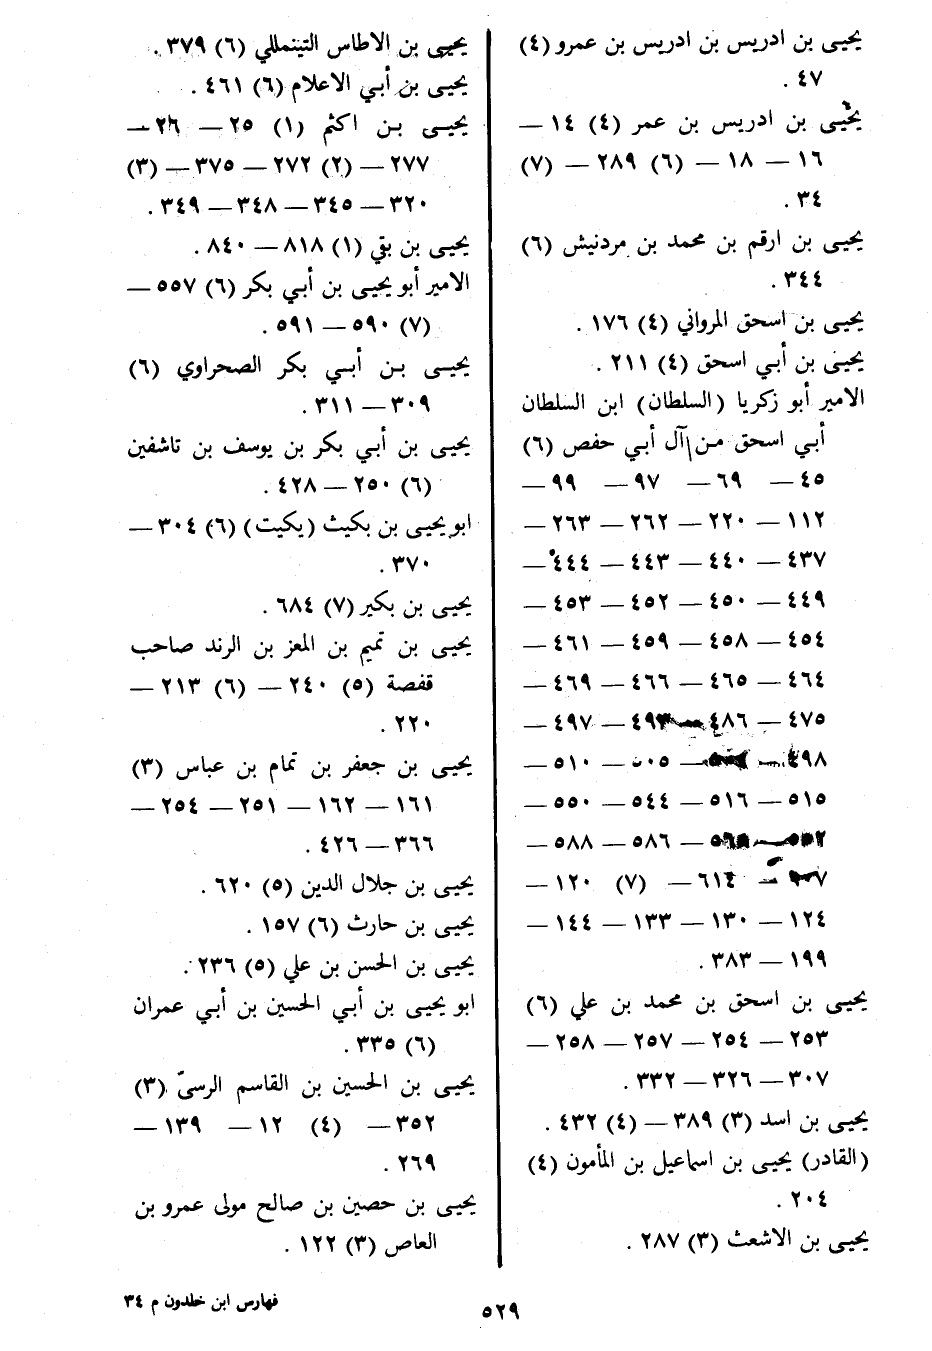 يحيى بن ادريس بن ادريس بن عمرو (٤)
٤٧ .
يحيى بن ادريس بن عمر (٤) ١٤ —
١٦ — ١٨ — (٦) ٢٨٩ — (٧)
٣٤ .
يحيى بن ارقم بن محمد بن مردنيش (٦)
٣٤٤ .
يحيى بن اسحق المرواني (٤) ١٧٦ .
يحيى بن أبي اسحق (٤) ٢١١ .
الامير أبو زكريا (السلطان) ابن السلطان
أبي اسحق من آل أبي حفص (٦)
٤٥ — ٦٩ — ٩٧ — ٩٩ —
١١٢ — ٢٢٠ — ٢٦٢ — ٢٦٣ —
٤٣٧ — ٤٤٠ — ٤٤٣ — ٤٤٤ —
٤٤٩ — ٤٥٠ — ٤٥٢ — ٤٥٣ —
٤٥٤ — ٤٥٨ — ٤٥٩ — ٤٦١ —
٤٦٤ — ٤٦٥ — ٤٦٦ — ٤٦٩ —
٤٧٥ — ٤٨٦ — ٤٩٣ — ٤٩٧ —
٤٩٨ — — ٥٠٥ — ٥١٠ —
٥١٥ — ٥١٦ — ٥٤٤ — ٥٥٠ —
— ٥٨٦ — ٥٨٨ —
— ٦١٤ — (٧) ١٢٠ —
١٢٤ — ١٣٠ — ١٣٣ — ١٤٤ —
١٩٩ — ٣٨٣ .
يحيى بن اسحق بن محمد بن علي (٦)
٢٥٣ — ٢٥٤ — ٢٥٧ — ٢٥٨ —
٣٠٧ — ٣٢٦ — ٣٣٢ .
يحيى بن اسد (٣) ٣٨٩ — (٤) ٤٣٢ .
(القادر) يحيى بن اسماعيل بن المأمون (٤)
٢٠٤ .
يحيى بن الاشعث (٣) ٢٨٧ .
يحيى بن الاطاس التينمللي (٦) ٣٧٩ .
يحيى بن أبي الاعلام (٦) ٤٦١ .
يحيى بن اكثم (١) ٢٥ — ٢٦ —
٢٧٧ — (٢) ٢٧٢ — ٣٧٥ — (٣)
٣٢٠ — ٣٤٥ — ٣٤٨ — ٣٤٩ .
يحيى بن بقي (١) ٨١٨ — ٨٤٠ .
الامير أبو يحيى بن أبي بكر (٦) ٥٥٧ —
(٧) ٥٩٠ — ٥٩١ .
يحيى بن أبي بكر الصحراوي (٦)
٣٠٩ — ٣١١ .
يحيى بن أبي بكر بن يوسف بن تاشفين
(٦) ٢٥٠ — ٤٢٨ .
ابو يحيى بن بكيث (يكيت) (٦) ٣٠٤ —
٣٧٠ .
يحيى بن بكير (٧) ٦٨٤ .
يحيى بن تميم بن المعز بن الرند صاحب
قفصة (٥) ٢٤٠ — (٦) ٢١٣ —
٢٢٠ .
يحيى بن جعفر بن تمام بن عباس (٣)
١٦١ — ١٦٢ — ٢٥١ — ٢٥٤ —
٣٦٦ — ٤٢٦ .
يحيى بن جلال الدين (٥) ٦٢٠ .
يحيى بن حارث (٦) ١٥٧ .
يحيى بن الحسن بن علي (٥) ٢٣٦ .
ابو يحيى بن أبي الحسين بن أبي عمران
(٦) ٣٣٥ .
يحيى بن الحسين بن القاسم الرسيّ (٣)
٣٥٢ — (٤) ١٢ — ١٣٩ —
٢٦٩ .
يحيى بن حصين بن صالح مولى عمرو بن
العاص (٣) ١٢٢ .
فهارس ابن خلدون م ٣٤
٥٢٩